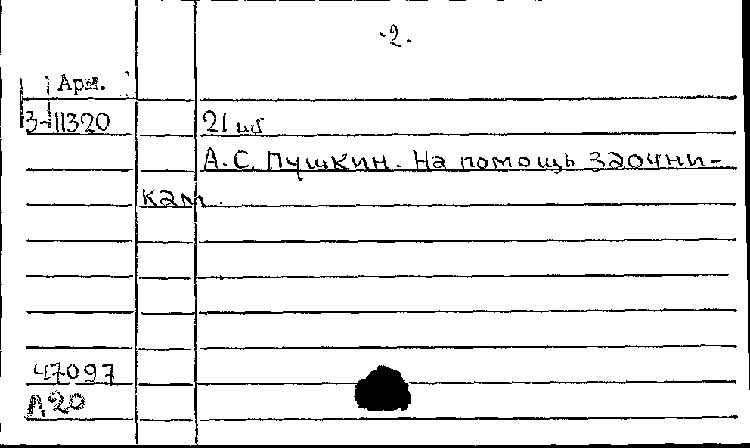 ·2.
Арм.
3-11320
21 шт
А.С. Пушкин. На помощь заочни-
кам.
47097
А20